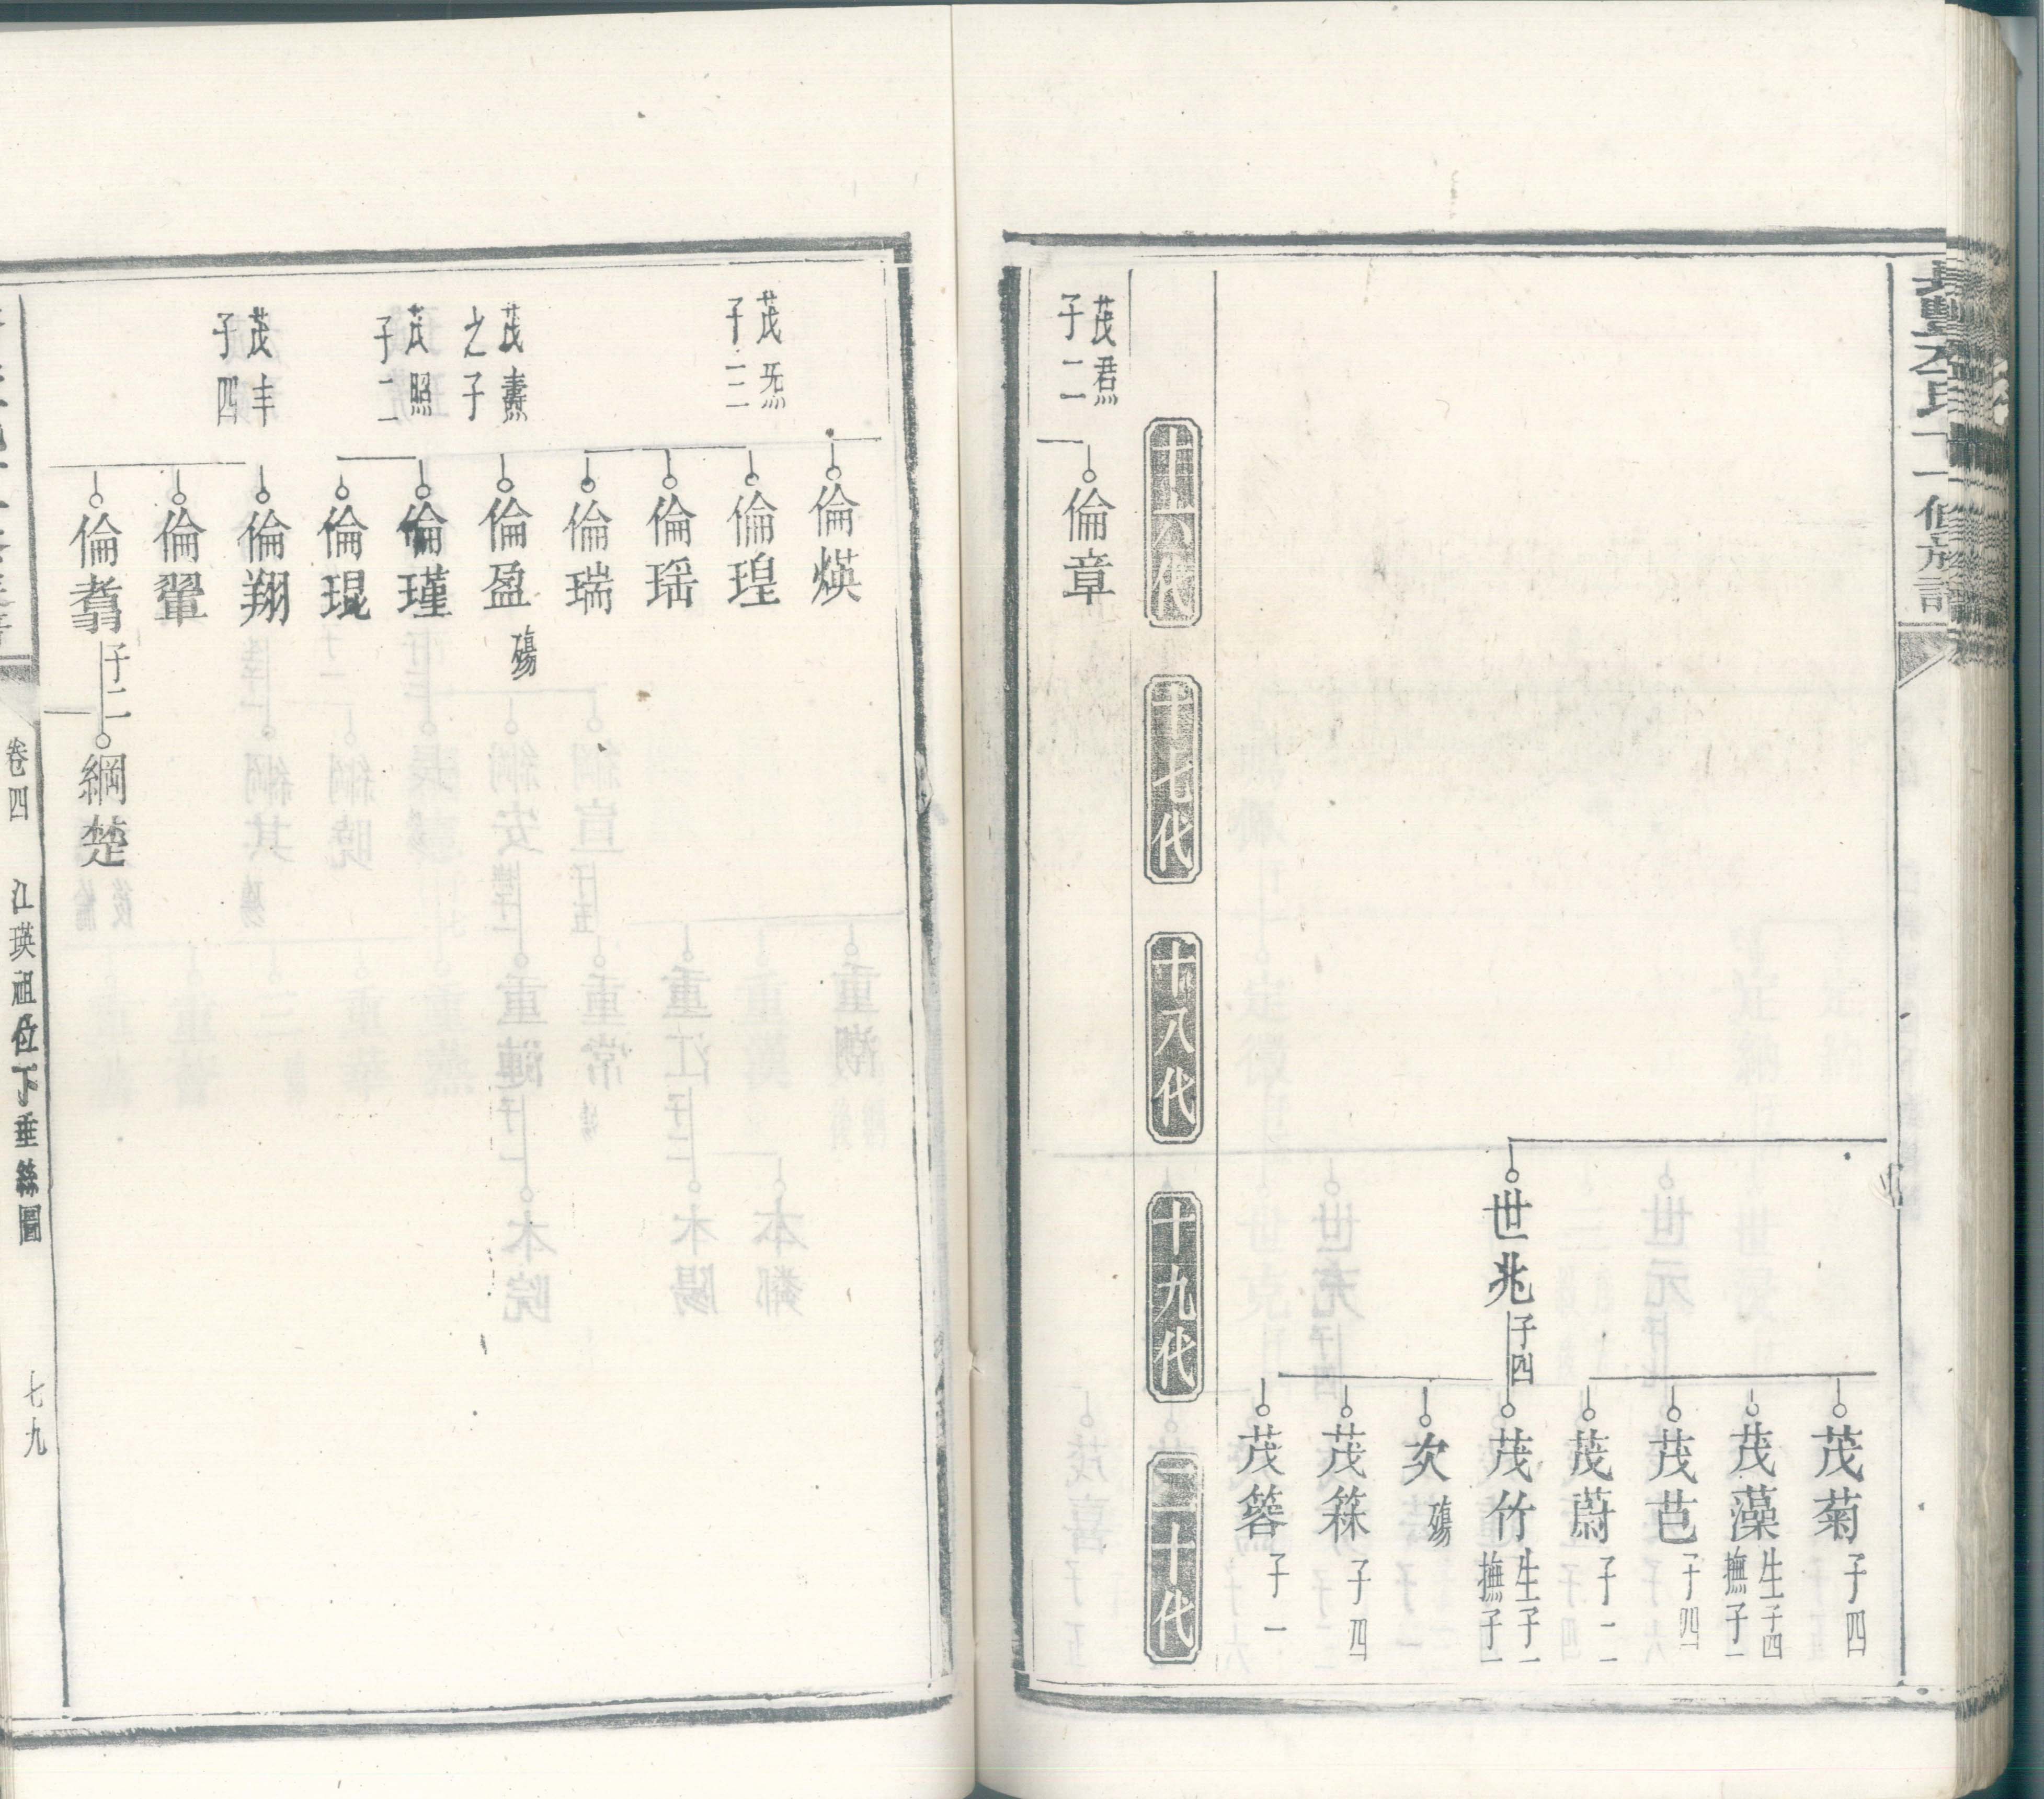 李氏十一修族譜
世兆
子四
茂菊
子四
茂藻
生子四
撫子一
茂芭
子四
茂蔚
子二
茂竹
生子一
撫子一
次
殤
茂箖
子四
茂簬
子一
十六代
十七代
十八代
十九代
二十代
茂焄
子二
倫章
倫煐
茂炁
子三
倫瑝
倫瑶
倫瑞
茂燾
之子
倫盈
殤
茂照
子二
倫瑾
倫琨
茂丰
子四
倫翔
倫翬
倫翥
子二
綱楚
卷四
江瑛祖位下垂絲圖
七九